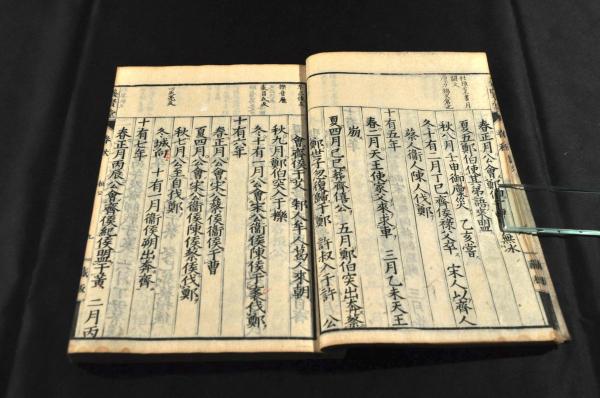 春正月公會鄭伯 無冰
夏五鄭伯使其弟語來盟
秋八月壬申御廩災 乙亥嘗
冬十有二月丁巳齊侯祿父卒 宋人以齊人
蔡人衞人陳人伐鄭
十有五年
春二月天王使家父來求車 三月乙未天王
崩
夏四月己巳葬齊僖公 五月鄭伯突出奔蔡
鄭世子忽復歸于鄭 許叔入于許 公
會齊侯于艾 邾人牟人葛人來朝
秋九月鄭伯突入于櫟
冬十有一月公會宋公衞侯陳侯于袲伐鄭
十有六年
春正月公會宋公蔡侯衞侯于曹
夏四月公會宋公衞侯陳侯蔡侯伐鄭
秋七月公至自伐鄭
冬城向 十有一月衞侯朔出奔齊
十有七年
春正月丙辰公會齊侯紀侯盟于黃 二月丙